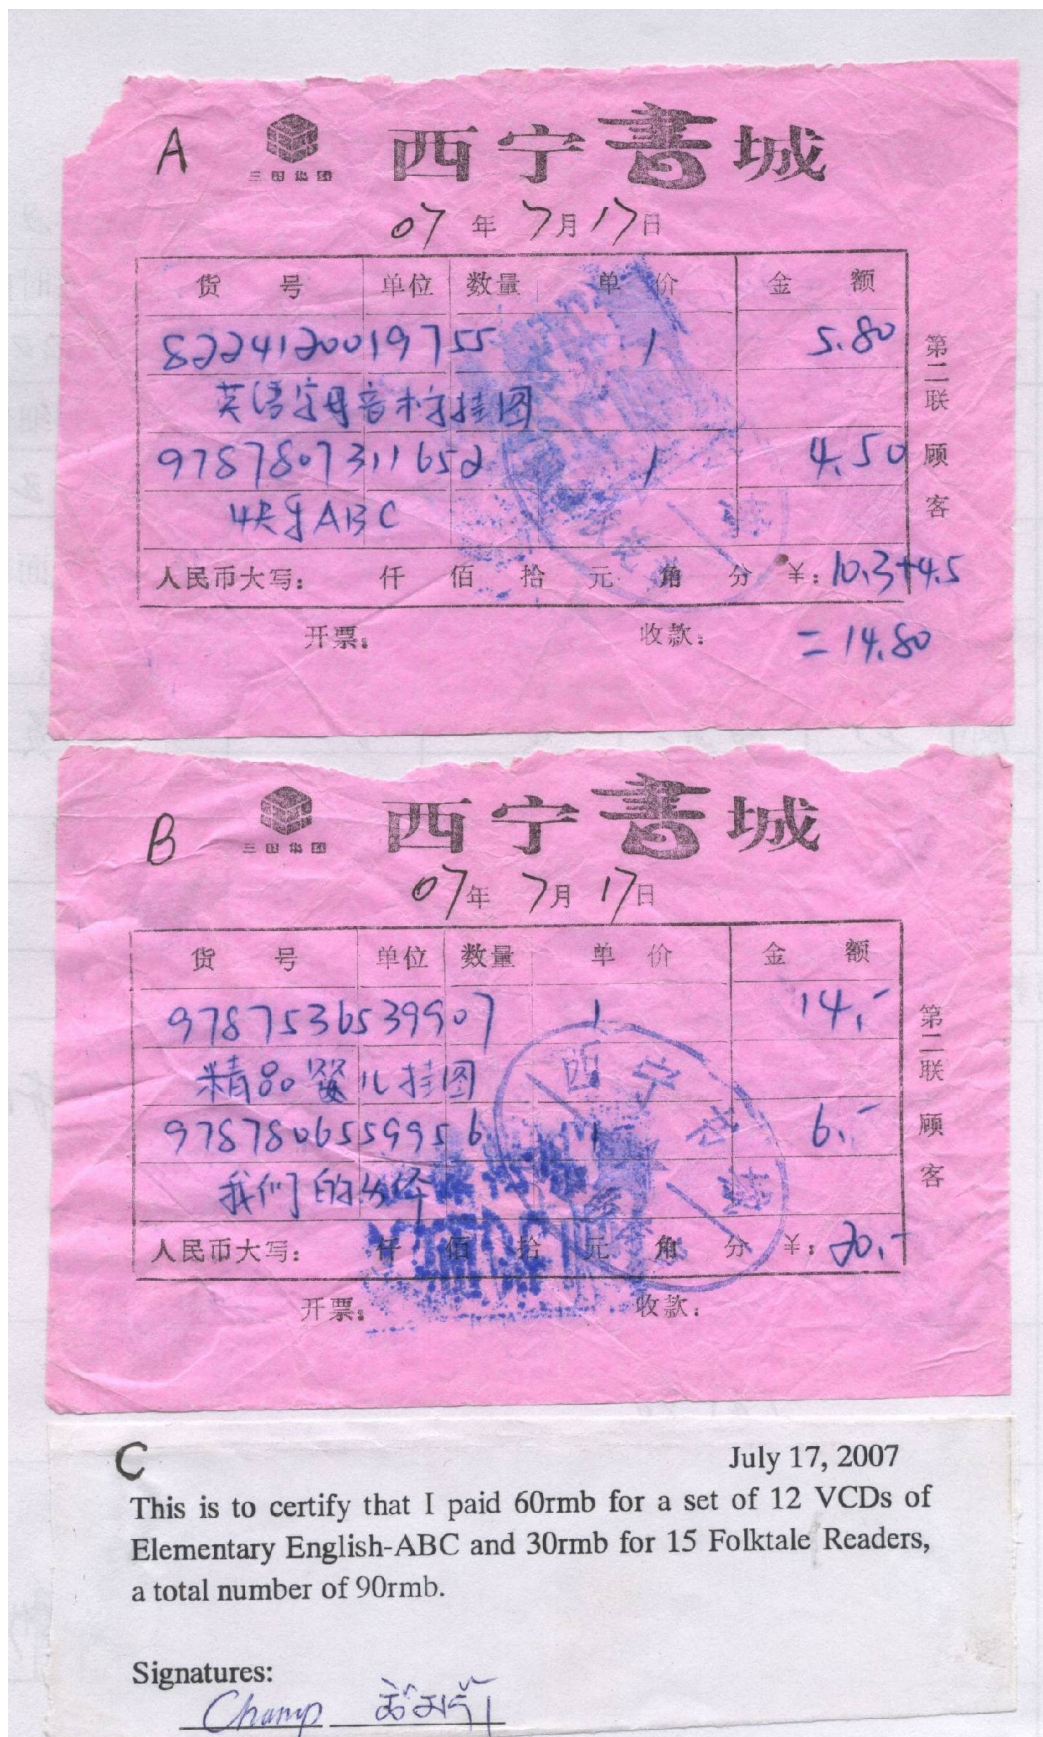 A 三田集团 西宁書城
07年7月17日
货号 单位 数量 单价 金额
8224120019755 1 5.80
英语字母音标挂图
9787807311652 1 4.50
ABC
人民币大写: 仟 佰 拾 元 角 分 ¥: 10.3+4.5
开票: 收款: =14.80
第二联 顾客
B 三田集团 西宁書城
07年7月17日
货号 单位 数量 单价 金额
9787536539907 1 14.-
精品婴儿挂图
9787806559956 1 6.-
我们的
人民币大写: 仟 佰 拾 元 角 分 ¥: 20.-
开票: 收款:
第二联 顾客
西宁
C July 17, 2007
This is to certify that I paid 60rmb for a set of 12 VCDs of
Elementary English-ABC and 30rmb for 15 Folktale Readers,
a total number of 90rmb.
Signatures: